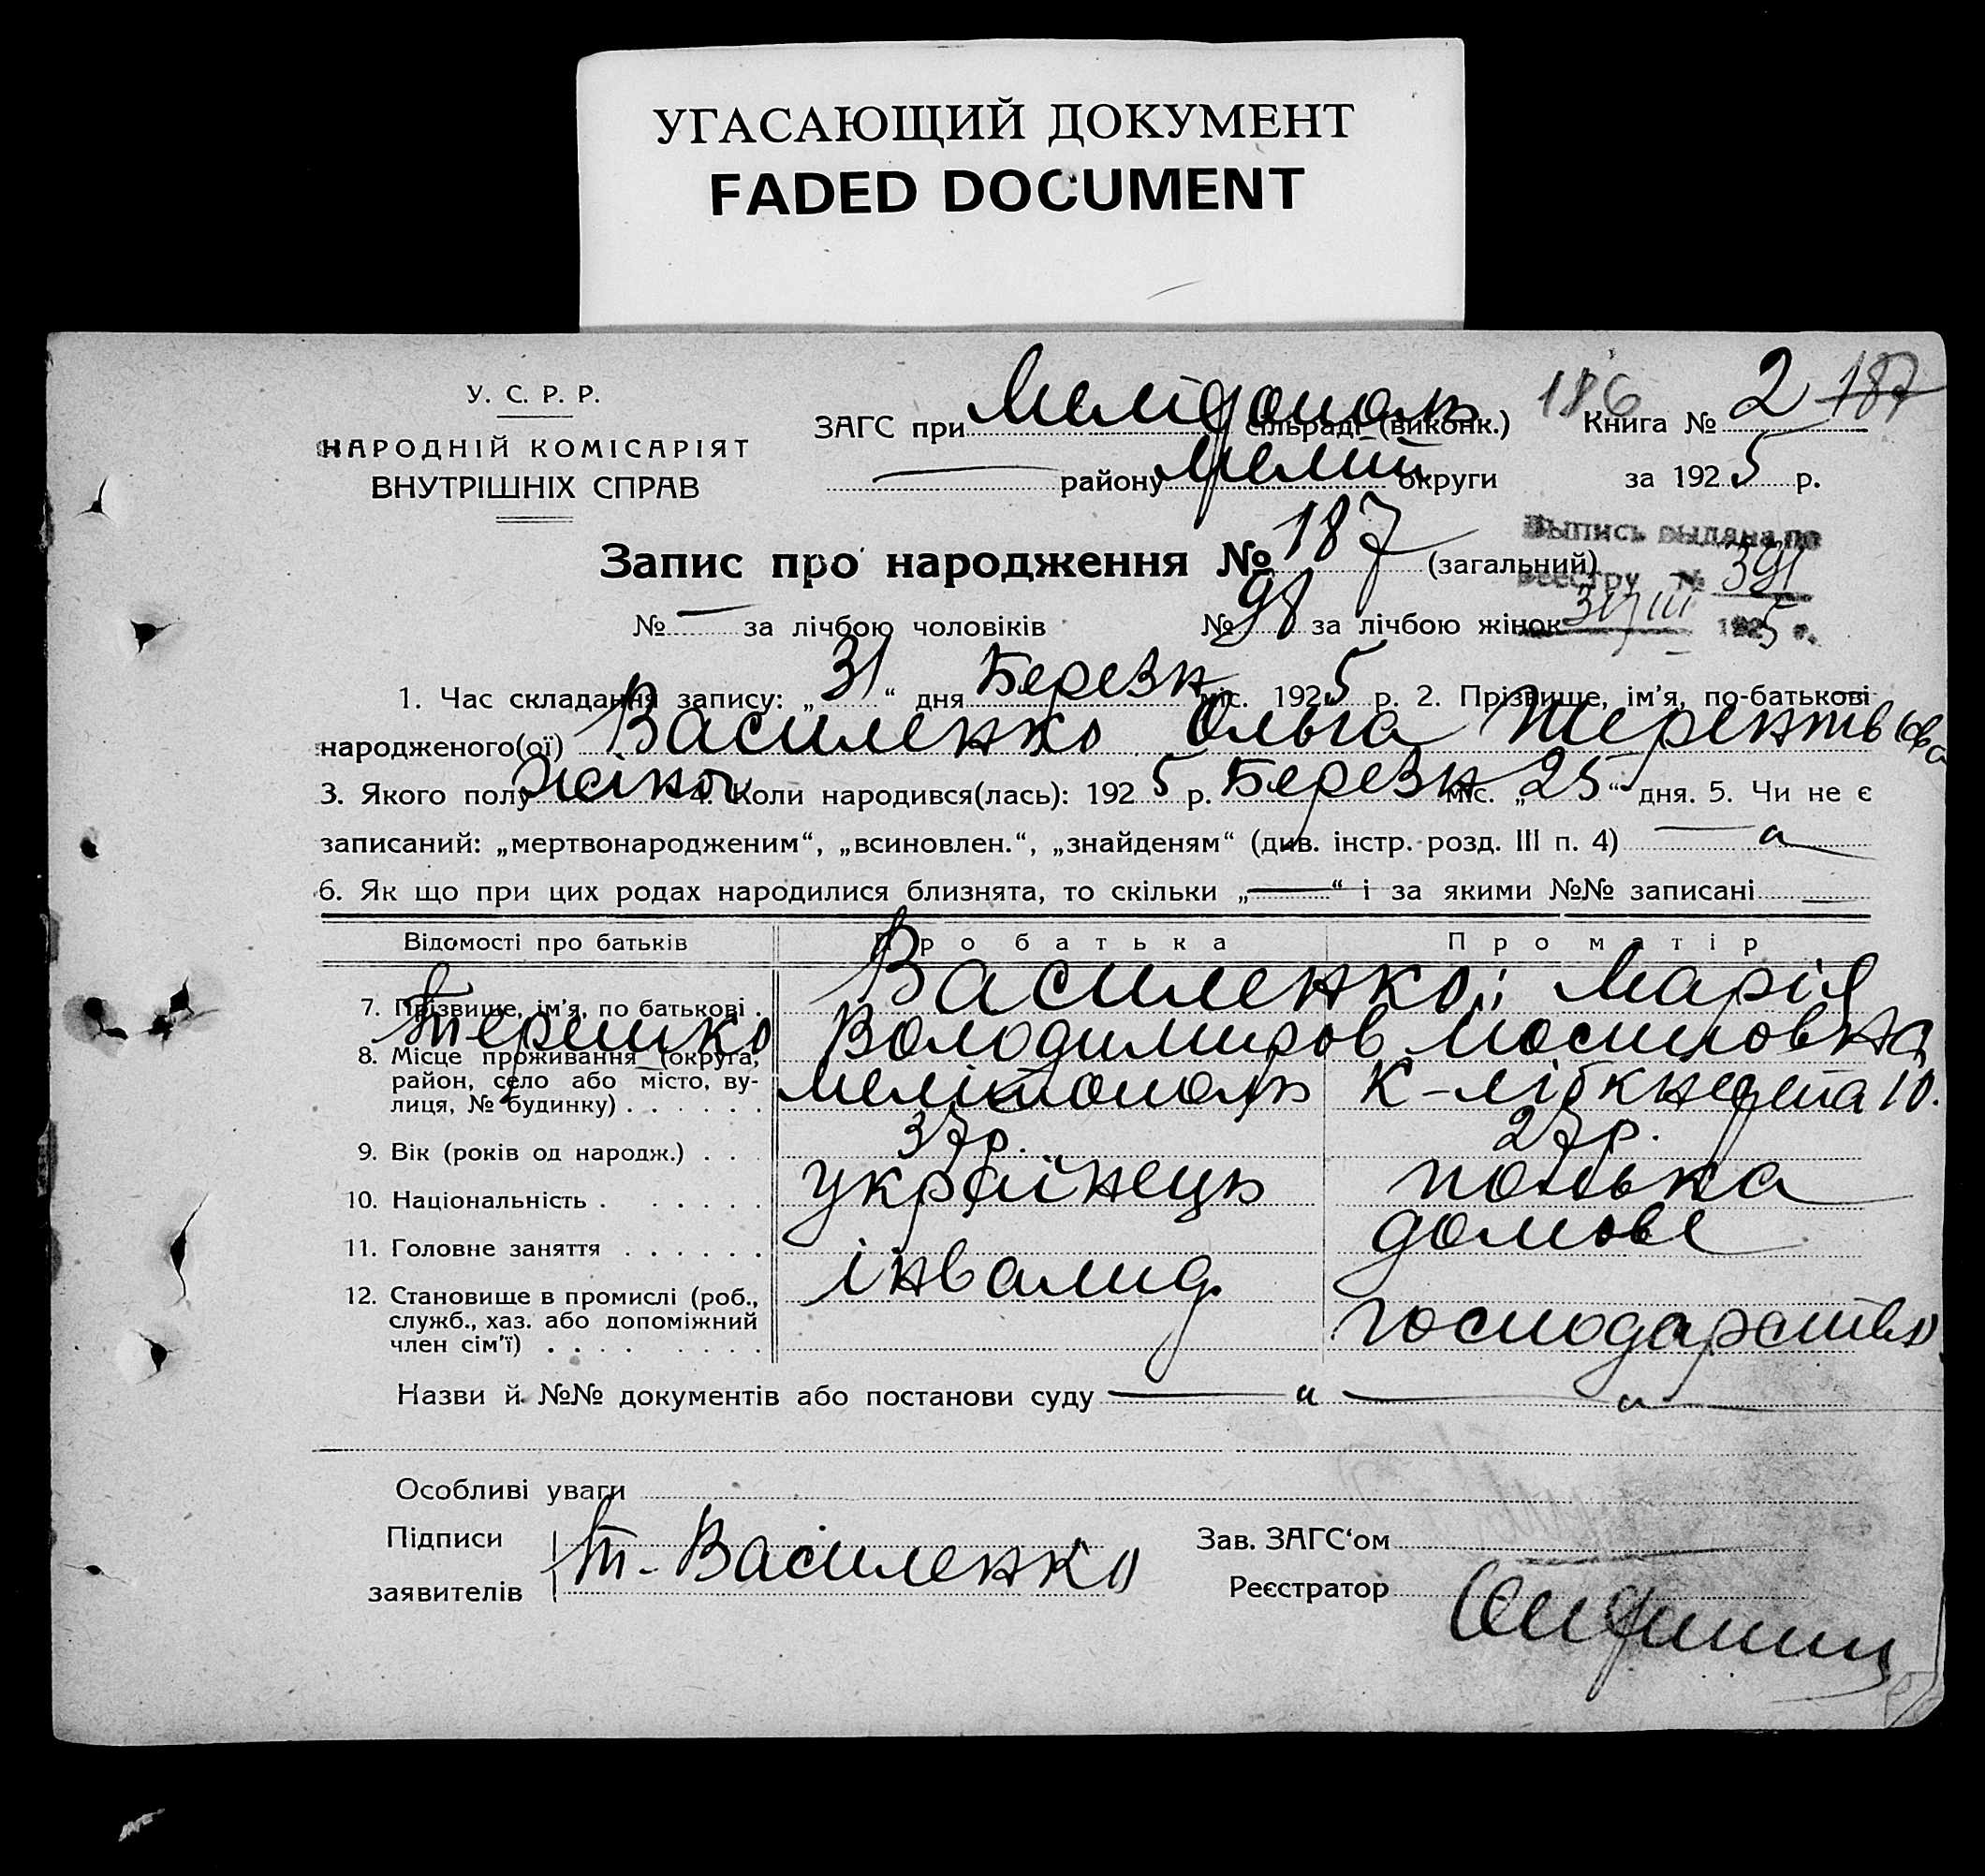 УГАСАЮЩИЙ ДОКУМЕНТ
FADED DOCUMENT
У. С. Р. Р.
НАРОДНІЙ КОМІСАРІЯТ
ВНУТРІШНІХ СПРАВ
ЗАГС при Мелітополь сільраді (виконк.)
району Меліт округи
186 Книга № 2 187
за 1925 р.
Выпись выдана по
реестру № 391
31/III 1925 г.
Запис про народження № 187 (загальний)
№ — за лічбою чоловіків № 98 за лічбою жінок
1. Час складання запису: „31“ дня Березня міс. 1925 р. 2. Прізвище, ім'я, по-батькові
народженого(ої) Василенко Ольга Терентьева
3. Якого полу жіноч 4. Коли народився(лась): 1925 р. Березня міс. „25“ дня. 5. Чи не є
записаний: „мертвонародженим“, „всиновлен.“, „знайденям“ (див. інстр. розд. III п. 4)
6. Як що при цих родах народилися близнята, то скільки „—“ і за якими №№ записані —
Відомості про батьків Про батька Про матір
7. Прізвище, ім'я, по батькові . Василенко Марія
Терешко Володимиров Йосиповна
8. Місце проживання (округа, район, село або місто, вулиця, № будинку) . Мелітополь К-лібкнехта 10.
9. Вік (років од народж.) . . . 37р. 27р.
10. Національність . українець полька
11. Головне заняття . . . . . . інвалид домове
12. Становище в промислі (роб., служб., хаз. або допоміжний член сім'ї) . . . . господарство
Назви й №№ документів або постанови суду
Особливі уваги
Підписи
заявителів Т. Василенко
Зав. ЗАГС'ом
Реєстратор